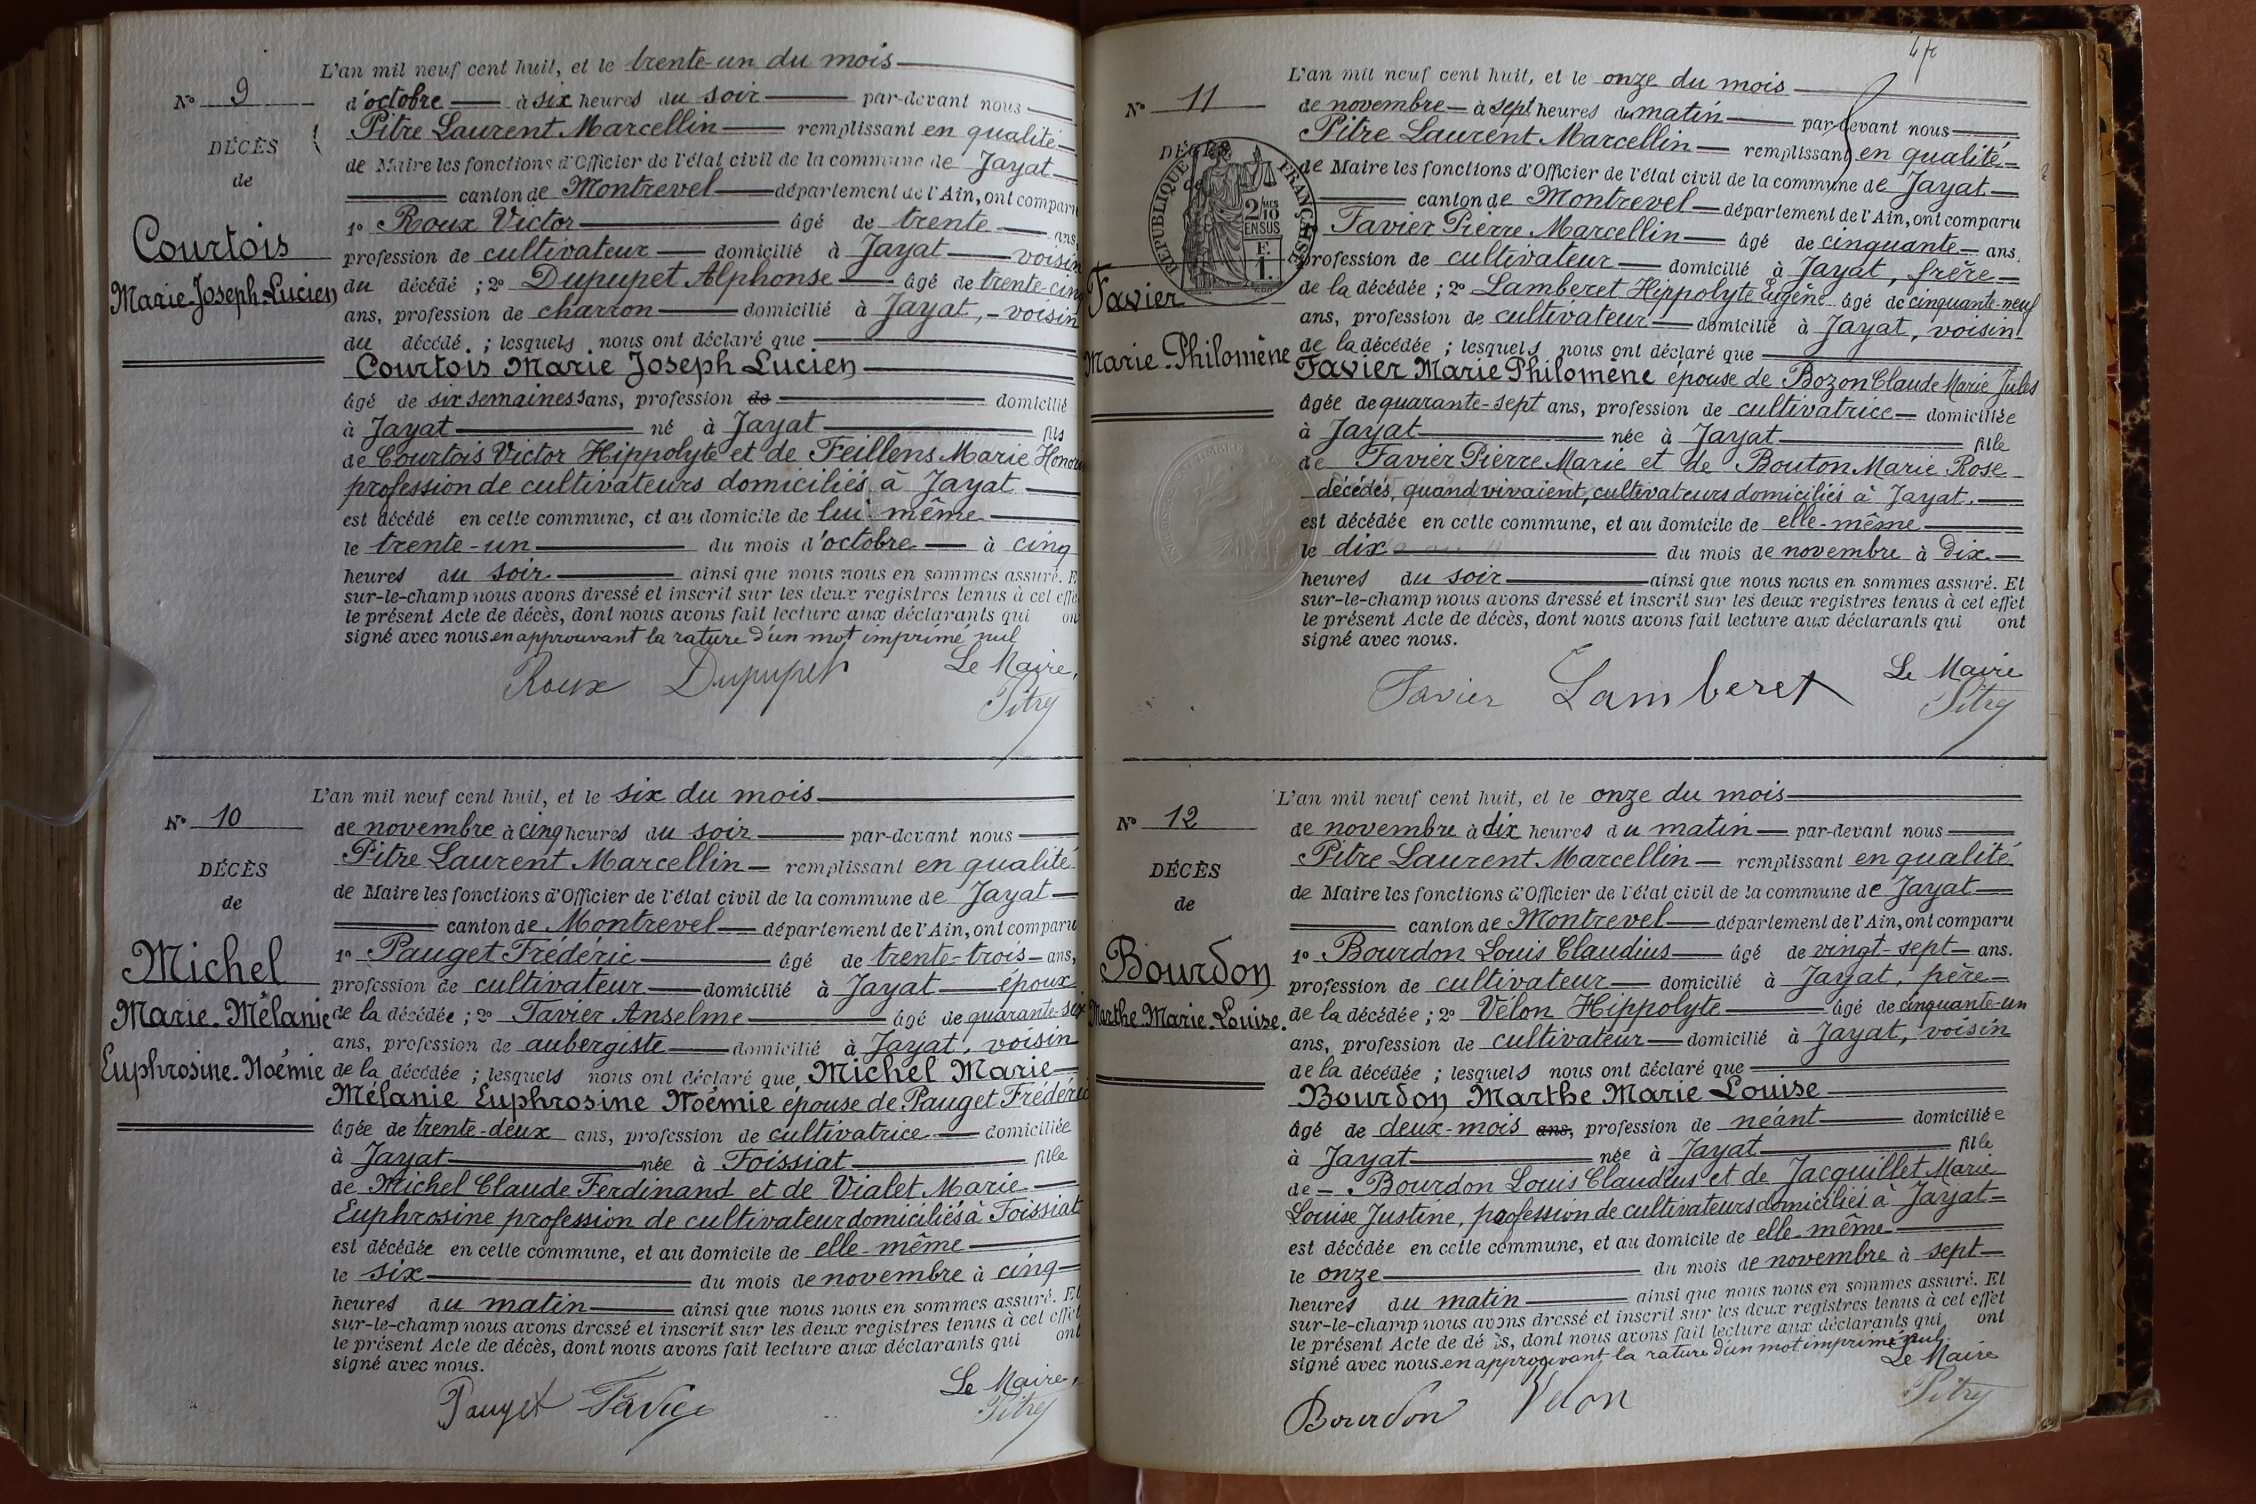 N° 9
DÉCÈS
de
Courtois
Marie-Joseph-Lucien
L'an mil neuf cent huit, et le trente-un du mois
d'octobre à six heures du soir par-devant nous
Pitre Laurent Marcellin remplissant en qualité
de Maire les fonctions d'Officier de l'état civil de la commune de Jayat
canton de Montrevel département de l'Ain, ont comparu
1° Roux Victor âgé de trente ans,
profession de cultivateur domicilié à Jayat voisin
du décédé ; 2° Dupupet Alphonse âgé de trente-cinq
ans, profession de charron domicilié à Jayat, voisin
du décédé ; lesquels nous ont déclaré que
Courtois Marie Joseph Lucien
âgé de six semaines ans, profession de domicilié
à Jayat né à Jayat fils
de Courtois Victor Hippolyte et de Feillens Marie
profession de cultivateurs domiciliés à Jayat
est décédé en cette commune, et au domicile de lui-même
le trente-un du mois d'octobre à cinq
heures du soir ainsi que nous nous en sommes assuré. Et
sur-le-champ nous avons dressé et inscrit sur les deux registres tenus à cet effet
le présent Acte de décès, dont nous avons fait lecture aux déclarants qui ont
signé avec nous en approuvant la rature d'un mot imprimé nul
Roux Dupupet Le Maire,
Pitre
N° 10
DÉCÈS
de
Michel
Marie-Mélanie
Euphrosine-Noémie
L'an mil neuf cent huit, et le six du mois
de novembre à cinq heures du soir par-devant nous
Pitre Laurent Marcellin remplissant en qualité
de Maire les fonctions d'Officier de l'état civil de la commune de Jayat
canton de Montrevel département de l'Ain, ont comparu
1° Pauget Frédéric âgé de trente-trois ans,
profession de cultivateur domicilié à Jayat époux
de la décédée ; 2° Favier Anselme âgé de quarante-six
ans, profession de aubergiste domicilié à Jayat, voisin
de la décédée ; lesquels nous ont déclaré que Michel Marie
Mélanie Euphrosine Noémie épouse de Pauget Frédéric
âgée de trente-deux ans, profession de cultivatrice domiciliée
à Jayat née à Foissiat fille
de Michel Claude Ferdinand et de Vialet Marie
Euphrosine profession de cultivateur domiciliés à Foissiat
est décédée en cette commune, et au domicile de elle-même
le six du mois de novembre à cinq
heures du matin ainsi que nous nous en sommes assuré. Et
sur-le-champ nous avons dressé et inscrit sur les deux registres tenus à cet effet
le présent Acte de décès, dont nous avons fait lecture aux déclarants qui ont
signé avec nous.
Le Maire,
Pauget Favier Pitre
N° 11
DÉCÈS
de
RÉPUBLIQUE FRANÇAISE
2/10 MES
EN SUS
F.
1.
Favier
Marie-Philomène
L'an mil neuf cent huit, et le onze du mois
de novembre à sept heures du matin par-devant nous
Pitre Laurent Marcellin remplissant en qualité
de Maire les fonctions d'Officier de l'état civil de la commune de Jayat
canton de Montrevel département de l'Ain, ont comparu
Favier Pierre Marcellin âgé de cinquante ans.
profession de cultivateur domicilié à Jayat, frère
de la décédée ; 2° Lamberet Hippolyte Eugène âgé de cinquante-neuf
ans, profession de cultivateur domicilié à Jayat, voisin
de la décédée ; lesquels nous ont déclaré que
Favier Marie Philomène épouse de Bozon Claude Marie Jules
âgée de quarante-sept ans, profession de cultivatrice domiciliée
à Jayat née à Jayat fille
de Favier Pierre Marie et de Bouton Marie Rose
décédés, quand vivaient, cultivateurs domiciliés à Jayat.
est décédée en cette commune, et au domicile de elle-même
le dix du mois de novembre à dix
heures du soir ainsi que nous nous en sommes assuré. Et
sur-le-champ nous avons dressé et inscrit sur les deux registres tenus à cet effet
le présent Acte de décès, dont nous avons fait lecture aux déclarants qui ont
signé avec nous.
Favier Lamberet Le Maire
Pitre
N° 12
DÉCÈS
de
Bourdon
Marthe-Marie-Louise.
L'an mil neuf cent huit, et le onze du mois
de novembre à dix heures du matin par-devant nous
Pitre Laurent Marcellin remplissant en qualité
de Maire les fonctions d'Officier de l'état civil de la commune de Jayat
canton de Montrevel département de l'Ain, ont comparu
1° Bourdon Louis Claudius âgé de vingt-sept ans.
profession de cultivateur domicilié à Jayat, père
de la décédée ; 2° Vélon Hippolyte âgé de cinquante-un
ans, profession de cultivateur domicilié à Jayat, voisin
de la décédée ; lesquels nous ont déclaré que
Bourdon Marthe Marie Louise
âgé de deux-mois ans, profession de néant domiciliée
à Jayat née à Jayat fille
de Bourdon Louis Claudius et de Jacquillet Marie
Louise Justine, profession de cultivateurs domiciliés à Jayat
est décédée en cette commune, et au domicile de elle-même
le onze du mois de novembre à sept
heures du matin ainsi que nous nous en sommes assuré. Et
sur-le-champ nous avons dressé et inscrit sur les deux registres tenus à cet effet
le présent Acte de décès, dont nous avons fait lecture aux déclarants qui ont
signé avec nous en approuvant la rature d'un mot imprimé nul.
Le Maire
Bourdon Velon Pitre